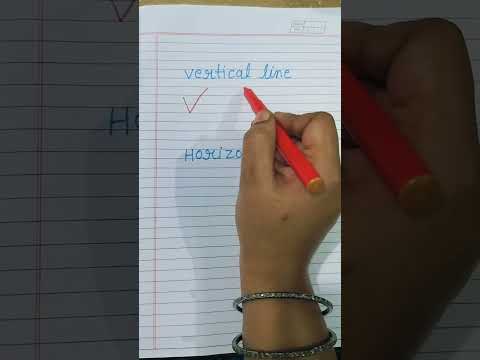 vertical line
Horizo